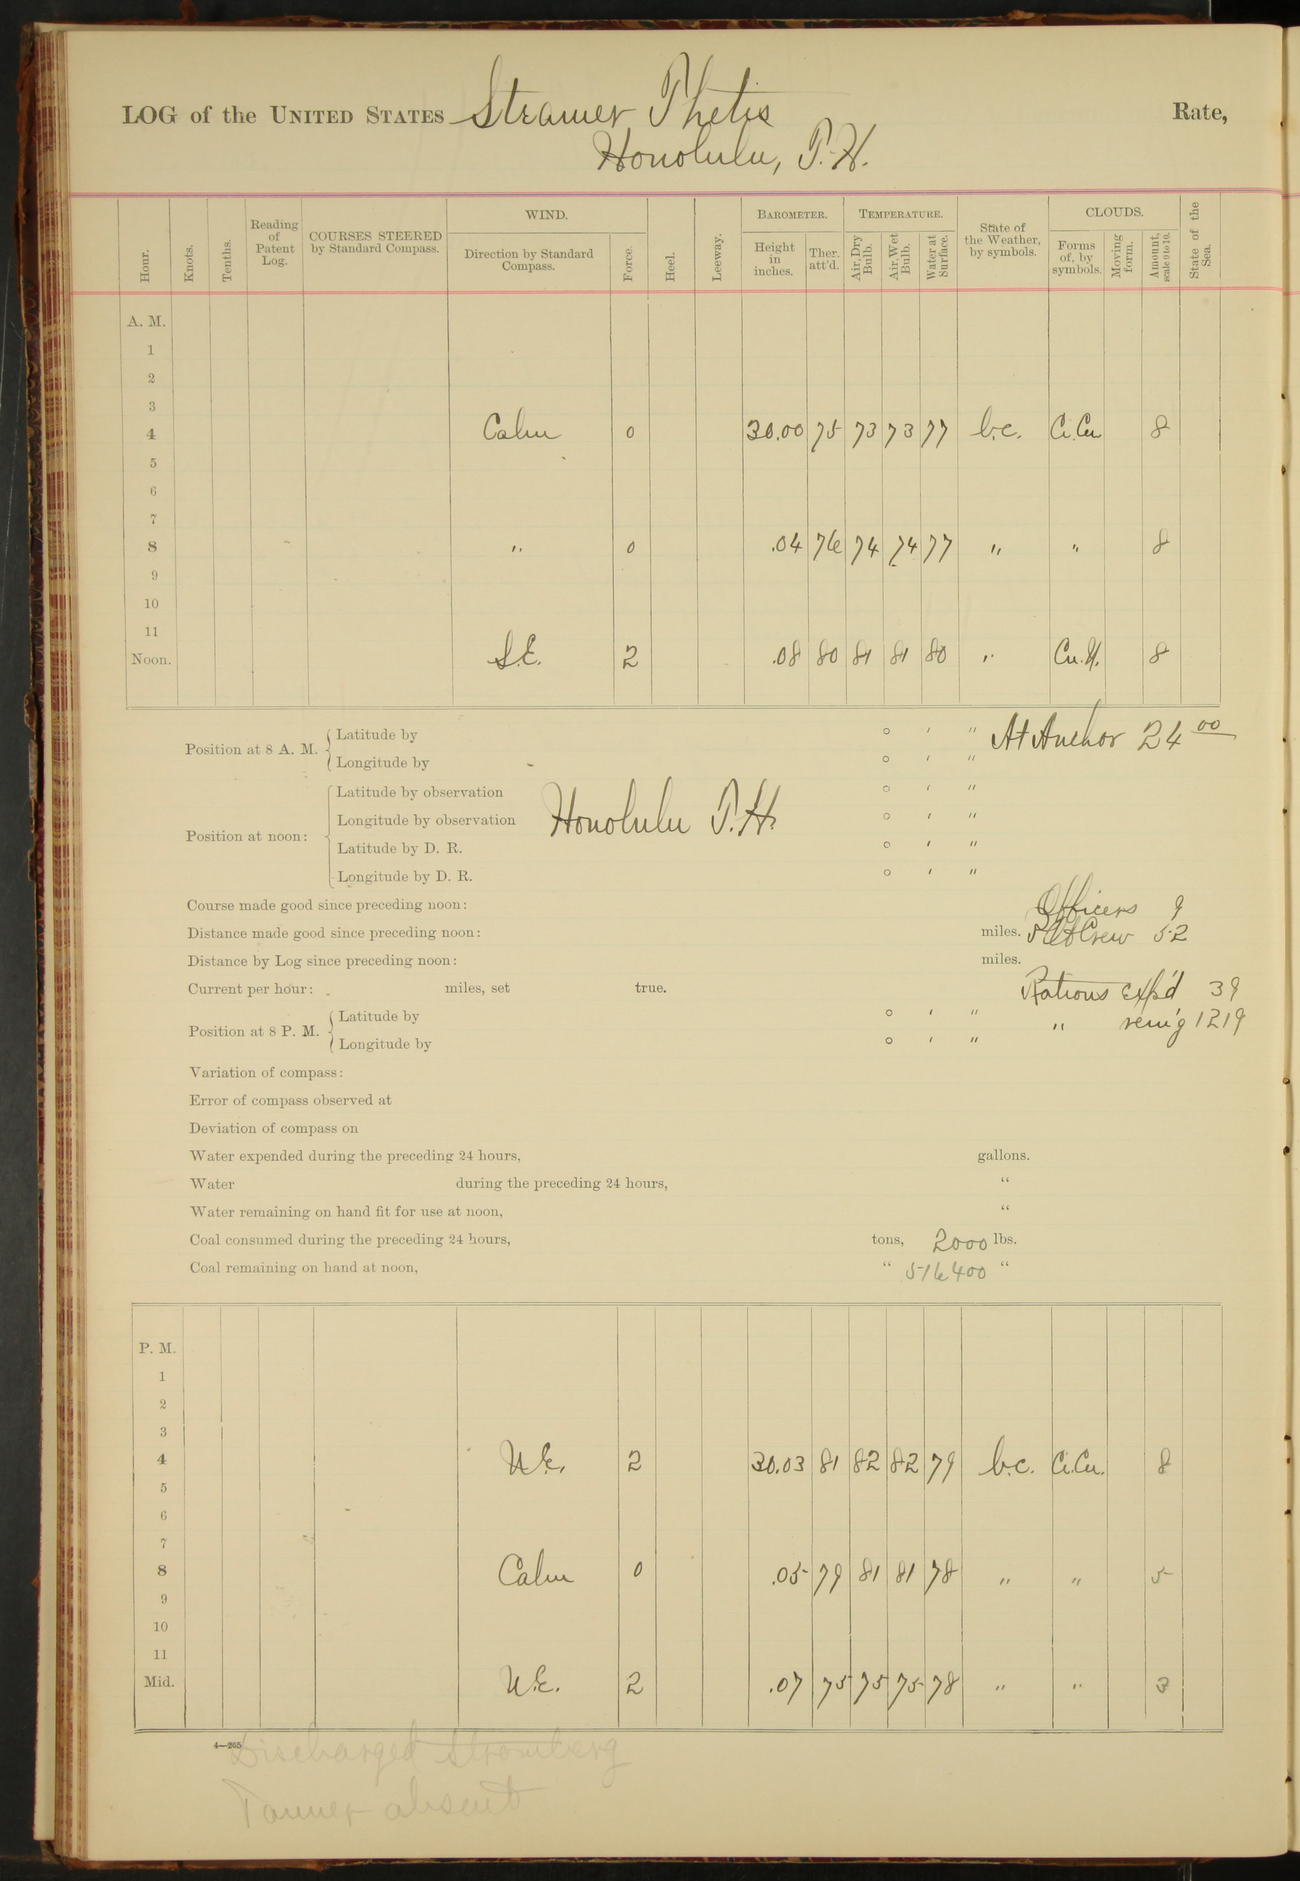 LOG of the UNITED STATES Steamer Thetis Rate,
Honolulu, T.H.
Hour. Knots. Tenths. Reading of Patent Log. COURSES STEERED by Standard Compass. WIND. Direction by Standard Compass. Force. Heel. Leeway. BAROMETER. Height in inches. Ther. att'd. TEMPERATURE. Air, Dry Bulb. Air, Wet Bulb. Water at Surface. State of the Weather, by symbols. CLOUDS. Forms of, by symbols. Moving form. Amount, scale 0 to 10. State of the Sea.
A. M.
1
2
3
4 Calm 0 30.00 75 73 73 77 b.c. Ci.Cu 8
5
6
7
8 " 0 .04 76 74 74 77 " " 8
9
10
11
Noon. S.E. 2 .08 80 81 81 80 " Cu.N. 8
Position at 8 A. M. Latitude by ° ′ ″ At Anchor 24 00
Longitude by ° ′ ″
Position at noon: Latitude by observation ° ′ ″
Longitude by observation Honolulu T.H. ° ′ ″
Latitude by D. R. ° ′ ″
Longitude by D. R. ° ′ ″
Course made good since preceding noon: Officers 9
Distance made good since preceding noon: miles. Crew 52
Distance by Log since preceding noon: miles.
Current per hour: miles, set true. Rations Exp'd 39
Position at 8 P. M. Latitude by ° ′ ″ " rem'g 1219
Longitude by ° ′ ″
Variation of compass:
Error of compass observed at
Deviation of compass on
Water expended during the preceding 24 hours, gallons.
Water during the preceding 24 hours, "
Water remaining on hand fit for use at noon, "
Coal consumed during the preceding 24 hours, tons, 2000 lbs.
Coal remaining on hand at noon, " 516400 "
P. M.
1
2
3
4 N.E. 2 30.03 81 82 82 79 b.c. Ci.Cu. 8
5
6
7
8 Calm 0 .05 79 81 81 78 " " 5
9
10
11
Mid. N.E. 2 .07 75 75 75 78 " " 3
4—265
Discharged Stromberg
Tanner absent